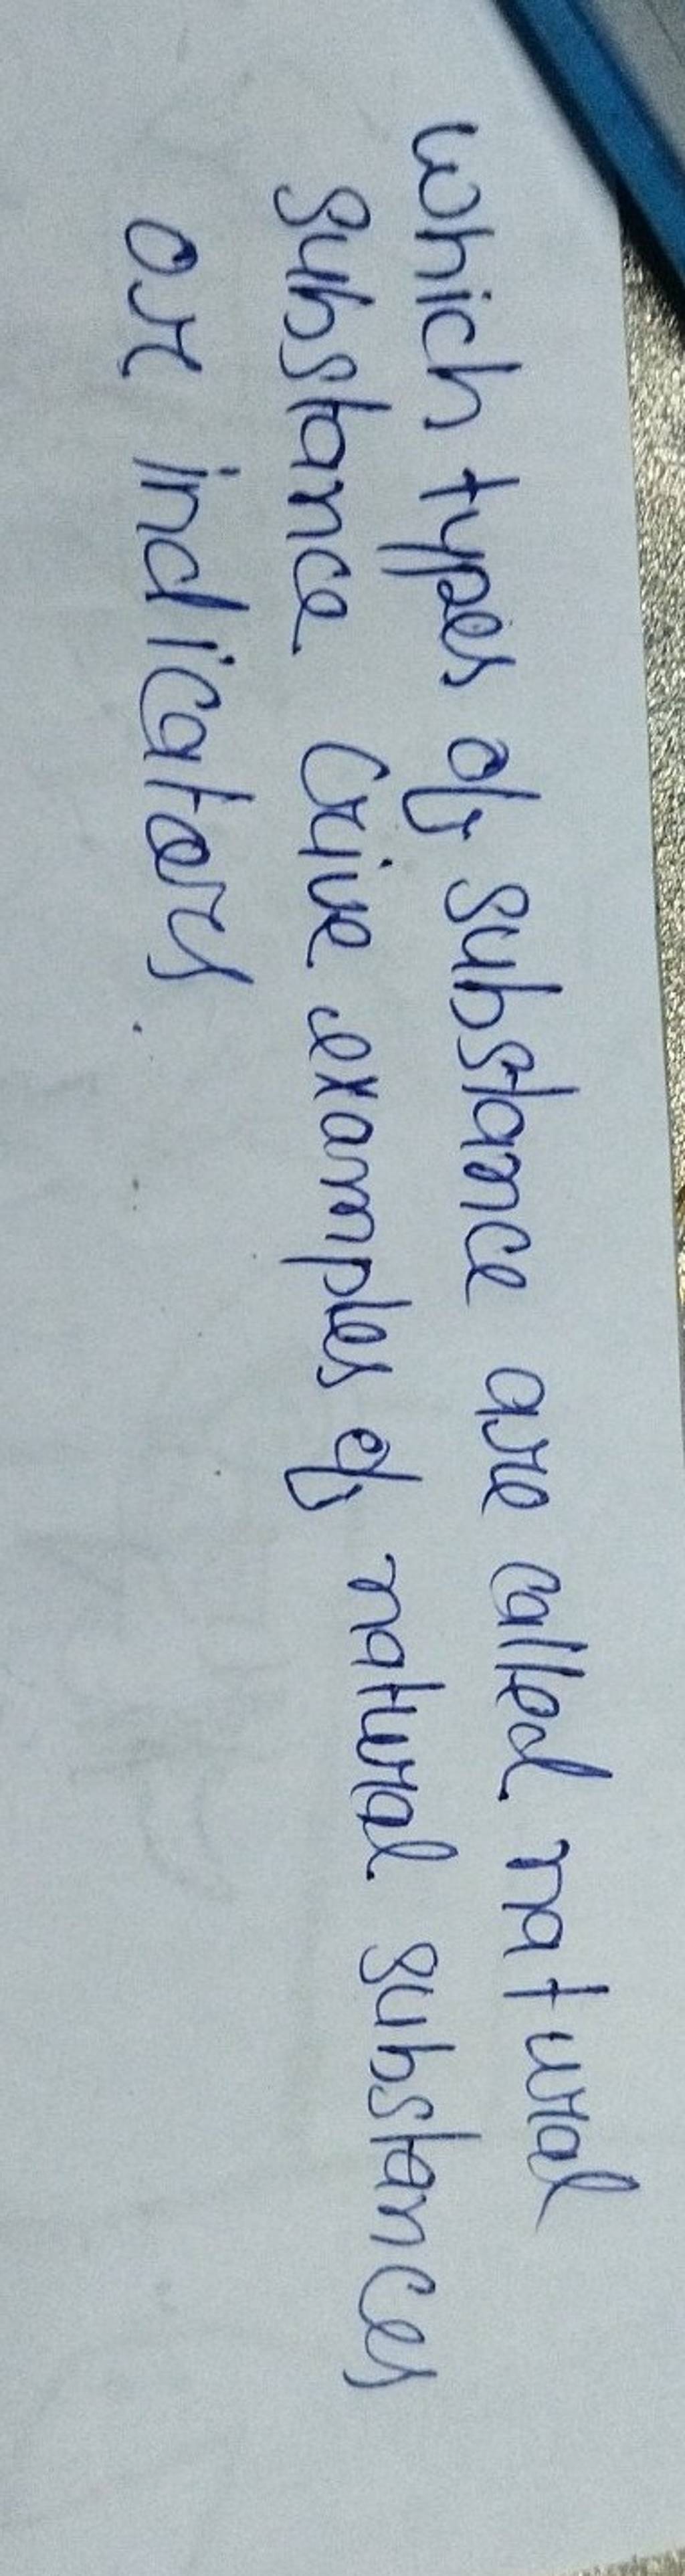 which types of substance are called natural
substance Give examples of natural substances
or indicators.